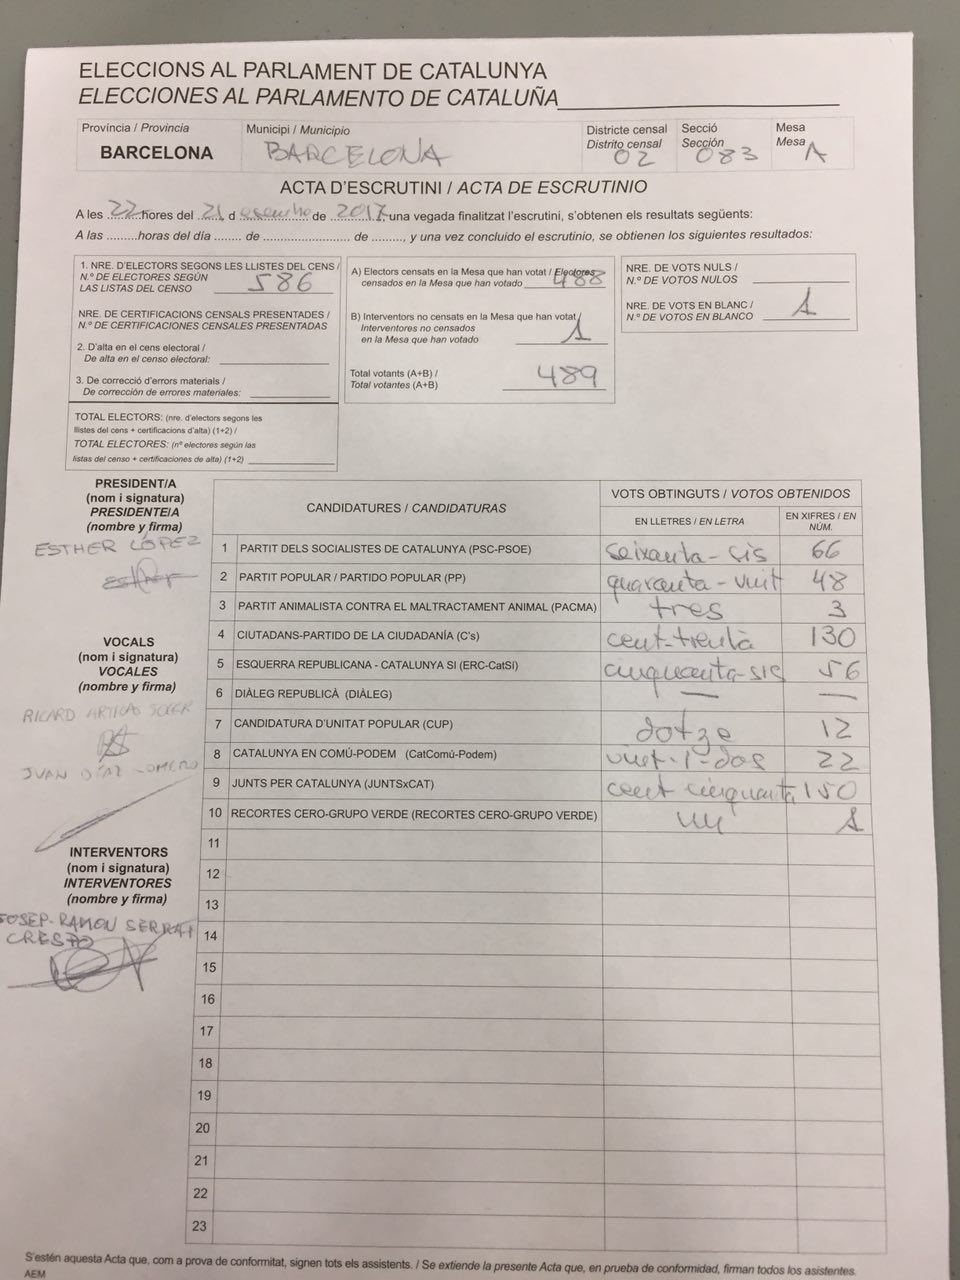 ELECCIONS AL PARLAMENT DE CATALUNYA
ELECCIONES AL PARLAMENTO DE CATALUÑA
Província / Provincia
BARCELONA
Municipi / Municipio
BARCELONA
Districte censal
Distrito censal
02
Secció
Sección
083
Mesa
Mesa
A
ACTA D'ESCRUTINI / ACTA DE ESCRUTINIO
A les 22 hores del 21 d desembre de 2017 una vegada finalitzat l'escrutini, s'obtenen els resultats següents:
A las .........horas del día ........ de .......................... de ........., y una vez concluido el escrutinio, se obtienen los siguientes resultados:
1. NRE. D'ELECTORS SEGONS LES LLISTES DEL CENS /
N.º DE ELECTORES SEGÚN
LAS LISTAS DEL CENSO 586
NRE. DE CERTIFICACIONS CENSALS PRESENTADES /
N.º DE CERTIFICACIONES CENSALES PRESENTADAS
2. D'alta en el cens electoral /
De alta en el censo electoral:
3. De correcció d'errors materials /
De corrección de errores materiales:
TOTAL ELECTORS: (nre. d'electors segons les
llistes del cens + certificacions d'alta) (1+2) /
TOTAL ELECTORES: (nº electores según las
listas del censo + certificaciones de alta) (1+2)
A) Electors censats en la Mesa que han votat / Electores
censados en la Mesa que han votado 488
B) Interventors no censats en la Mesa que han votat/
Interventores no censados
en la Mesa que han votado 1
Total votants (A+B) /
Total votantes (A+B) 489
NRE. DE VOTS NULS /
N.º DE VOTOS NULOS
NRE. DE VOTS EN BLANC /
N.º DE VOTOS EN BLANCO 1
PRESIDENT/A
(nom i signatura)
PRESIDENTE/A
(nombre y firma)
ESTHER LÓPEZ
VOCALS
(nom i signatura)
VOCALES
(nombre y firma)
RICARD ARTIGAS SOLER
JUAN DÍAZ ROMERO
INTERVENTORS
(nom i signatura)
INTERVENTORES
(nombre y firma)
JOSEP-RAMON SERRAT
CRESPO
CANDIDATURES / CANDIDATURAS
VOTS OBTINGUTS / VOTOS OBTENIDOS
EN LLETRES / EN LETRA
EN XIFRES / EN NÚM.
1 PARTIT DELS SOCIALISTES DE CATALUNYA (PSC-PSOE) seixanta-sis 66
2 PARTIT POPULAR / PARTIDO POPULAR (PP) quaranta-vuit 48
3 PARTIT ANIMALISTA CONTRA EL MALTRACTAMENT ANIMAL (PACMA) tres 3
4 CIUTADANS-PARTIDO DE LA CIUDADANÍA (C's) cent-trenta 130
5 ESQUERRA REPUBLICANA - CATALUNYA SI (ERC-CatSí) cinquanta-sis 56
6 DIÀLEG REPUBLICÀ (DIÀLEG) — —
7 CANDIDATURA D'UNITAT POPULAR (CUP) dotze 12
8 CATALUNYA EN COMÚ-PODEM (CatComú-Podem) vint-i-dos 22
9 JUNTS PER CATALUNYA (JUNTSxCAT) cent cinquanta 150
10 RECORTES CERO-GRUPO VERDE (RECORTES CERO-GRUPO VERDE) un 1
11
12
13
14
15
16
17
18
19
20
21
22
23
S'estén aquesta Acta que, com a prova de conformitat, signen tots els assistents. / Se extiende la presente Acta que, en prueba de conformidad, firman todos los asistentes.
AEM